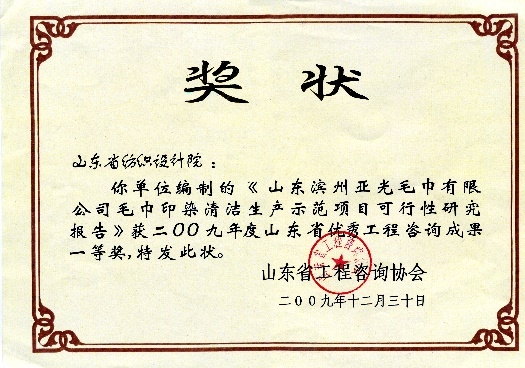 奖状
山东省纺织设计院：
你单位编制的《山东滨州亚光毛巾有限
公司毛巾印染清洁生产示范项目可行性研究
报告》获二〇〇九年度山东省优秀工程咨询成果
一等奖，特发此状。
山东省工程咨询协会
二〇〇九年十二月三十日